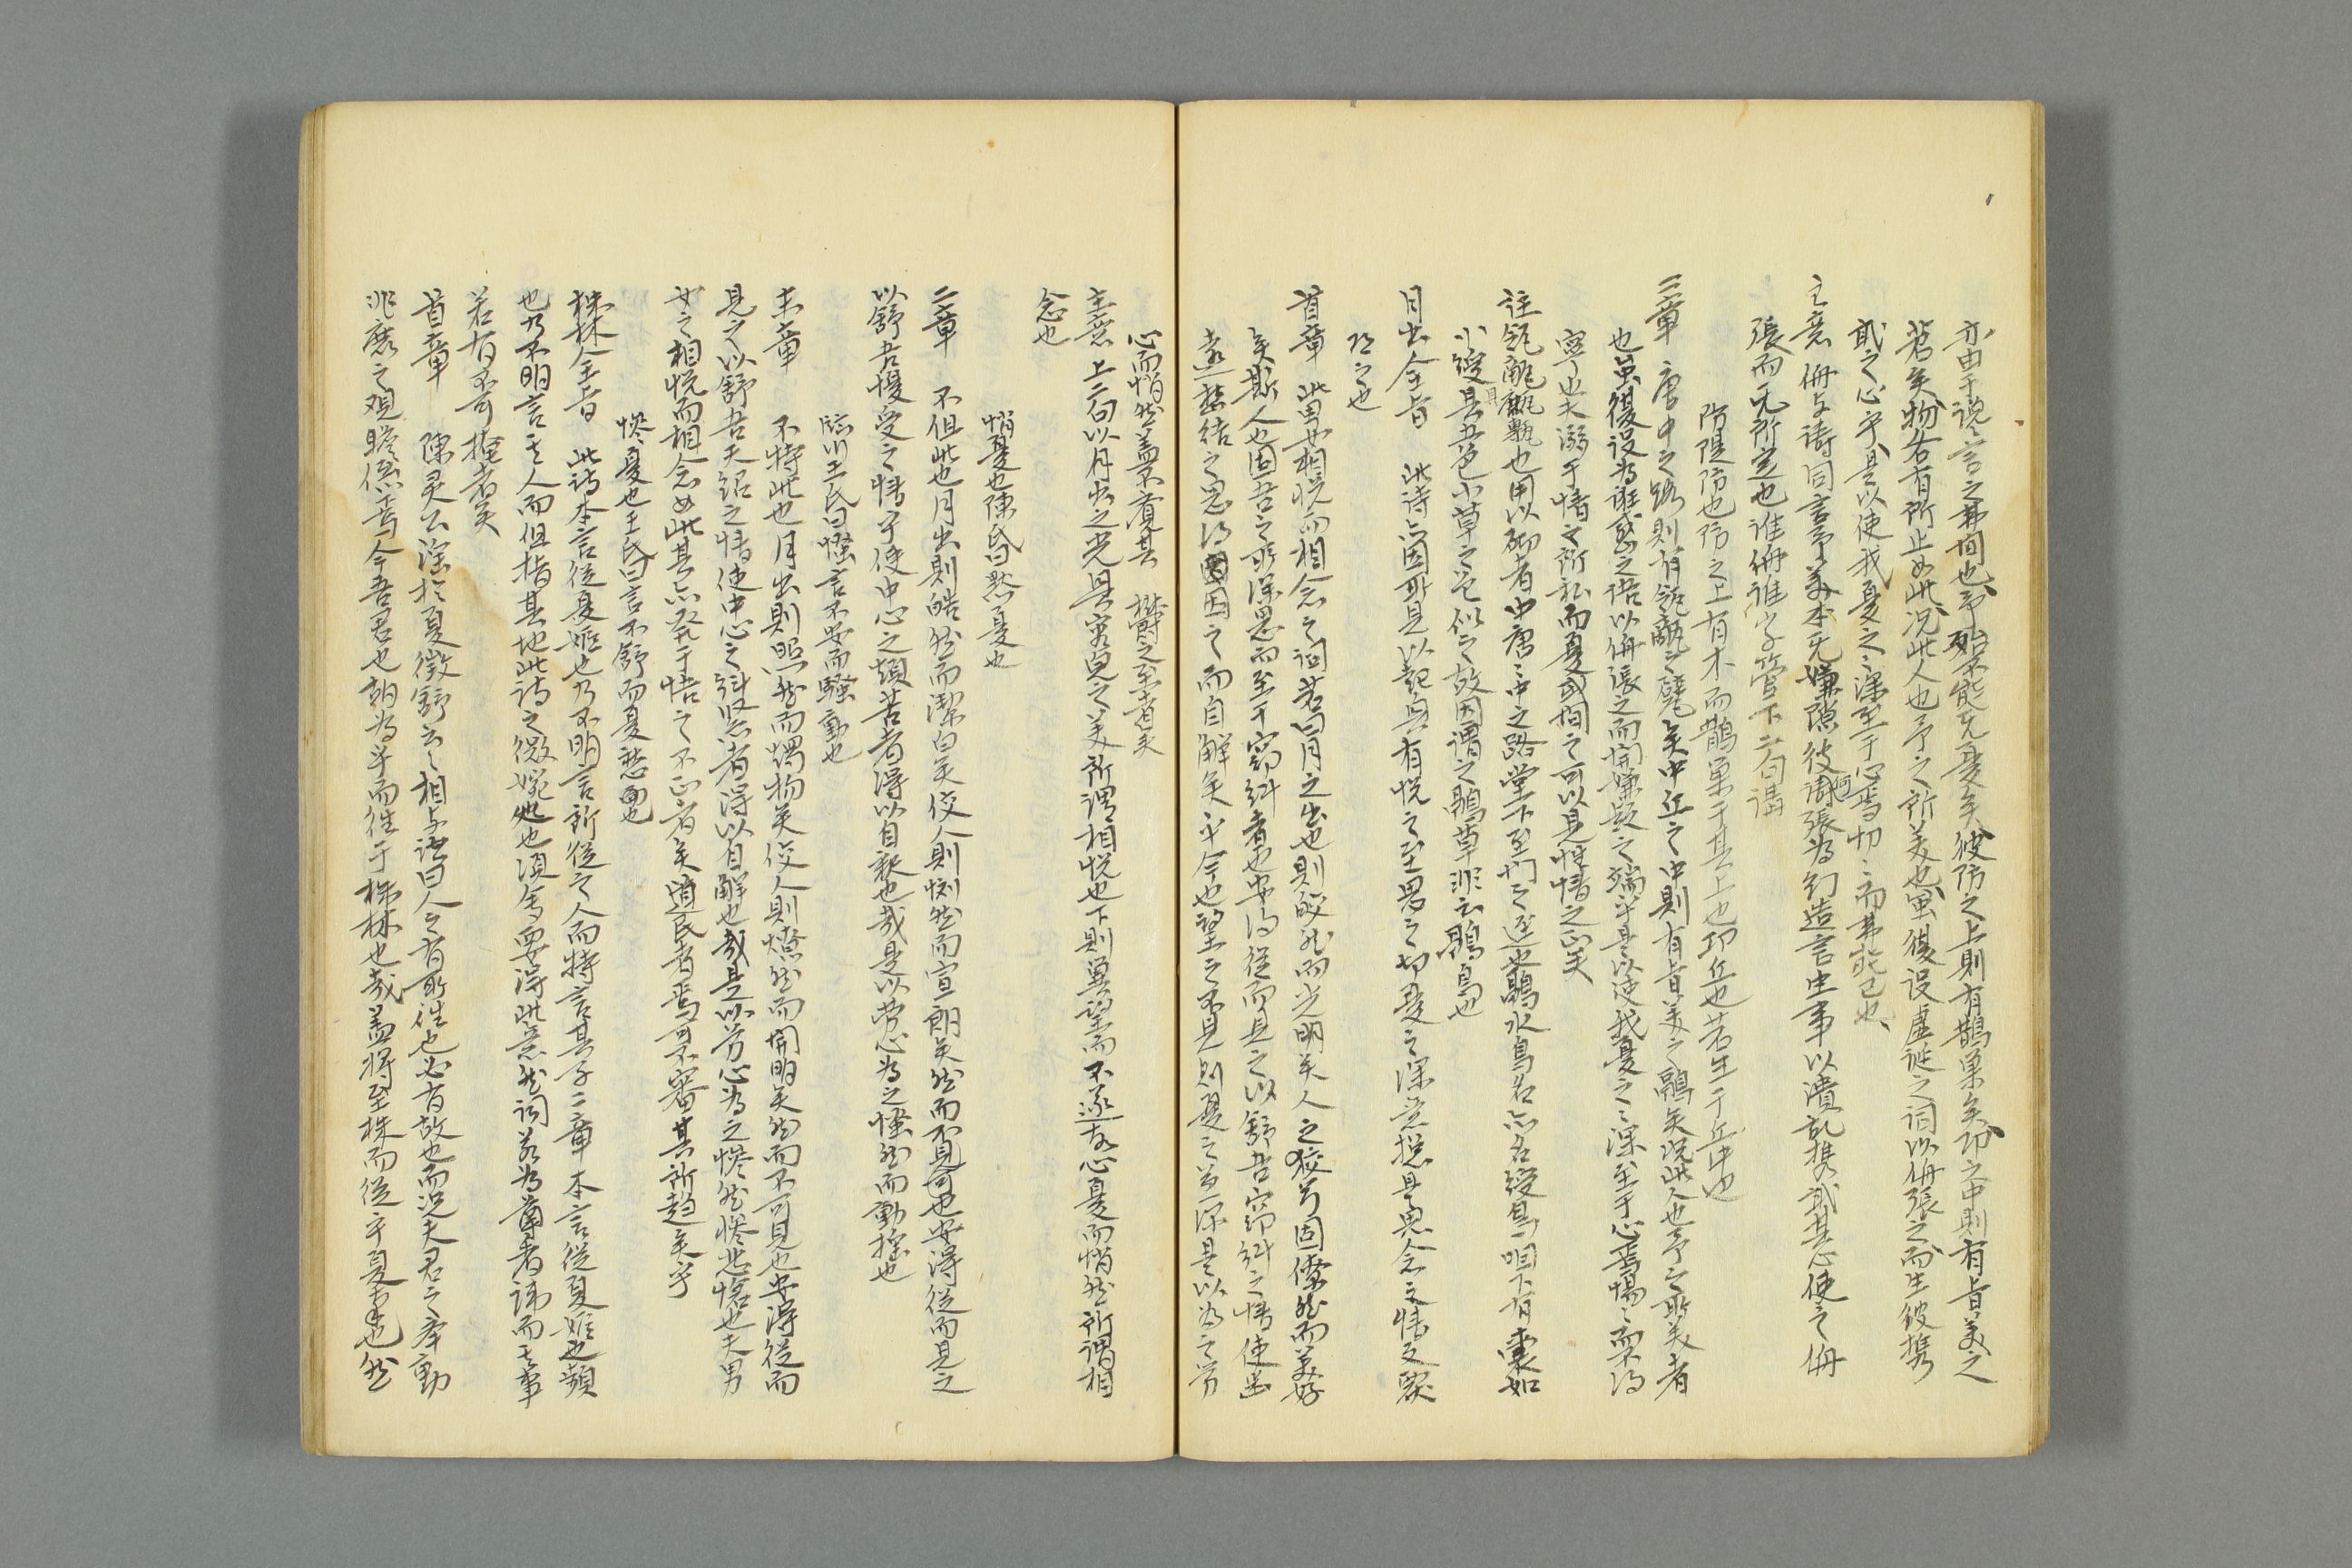 亦由于说言之弗间也予始不能无憂矣彼防之上則有鵲巢矣邛之中則有旨美之
苕矣物各有所止如此况此人也予之所美也虽復设虚诞之词以侜張之而生彼携
貳之心乎是以使我憂之之深至于心焉忉忉而弗能已也
主意 侜与诪同言予美本无嫌隙彼何譸張为幻造言生事以潰乱携貳其心使之侜
張而无所定也谁侜谁字管下二句講
防隄防也防之上有木而鵲巢于其上也邛丘也苕生于丘中也
二章 唐中之路則有瓴甋之甓矣中丘之中則有旨美之鷊矣况此人也予之所美者
也虽復设为诳惑之语以侜張之而開嫌疑之端乎是以使我憂之之深至于心焉惕惕而不得
寧也夫溺于情之所私而憂或间之可以見性情之正矣
註瓴甋瓴甋也用以砌者中唐唐中之路堂下至门之逕也鷊水鳥名亦名綬鳥咽下有囊如
小綬具五色小草之色似之故因谓之鷊草非言鷊鳥也
月出全旨 此诗亦因所見以起興有悦之至思之切憂之深意揔是思念之情反覆
道之也
首章 此男女相悦而相念之词若曰月之出也則皎然而光明矣人之狡兮固僚然而美好
矣斯人也固吾之所深思而至于窈糾者也安得從而見之以舒吾窈糾之情使幽
遠愁结之思得因之而自解矣乎今也望之不見則憂之益深是以为之劳
心而悄然盖不有其 鬱之至者矣
主意 上二句以月出之光興容貌之美所谓相悦也下則冀望而不遂故心憂而悄然所谓相
念也
悄憂也陳氏曰愁憂也
二章 不但此也月出則皓然而潔白矣佼人則懰然而宣朗矣然而不可見也安得從而見之
以舒吾懮受之情乎使中心之煩苦者得以自釋也哉是以劳心为之慅然而動摇也
臨川王氏曰慅言不安而騷動也
末章 不特此也月出則照然而燭物矣佼人則燎然而開明矣然而不可見也安得從而
見之以舒吾夭紹之情使中心之糾紧者得以自解也哉是以劳心为之慘然慘悲悽也夫男
女之相悦而相念如此其亦發于情之不正者矣導民者焉可不審其所趋矣乎
慘憂也王氏曰言不舒而憂愁也
株林全旨 此诗本言從夏姬也乃不明言所從之人而特言其子二章本言從夏姬也頻
也乃不明言其人而但指其地此诗之微婉处也须会要得此意然词若为尊者諱而其事
若有不可掩者矣
首章 陳灵公淫於夏徵舒之母相与语曰人之有所往也必有故也而况夫君之举動
兆庶之观瞻係焉今吾君也胡为乎而往于株林也哉盖将至株而從乎夏南也然